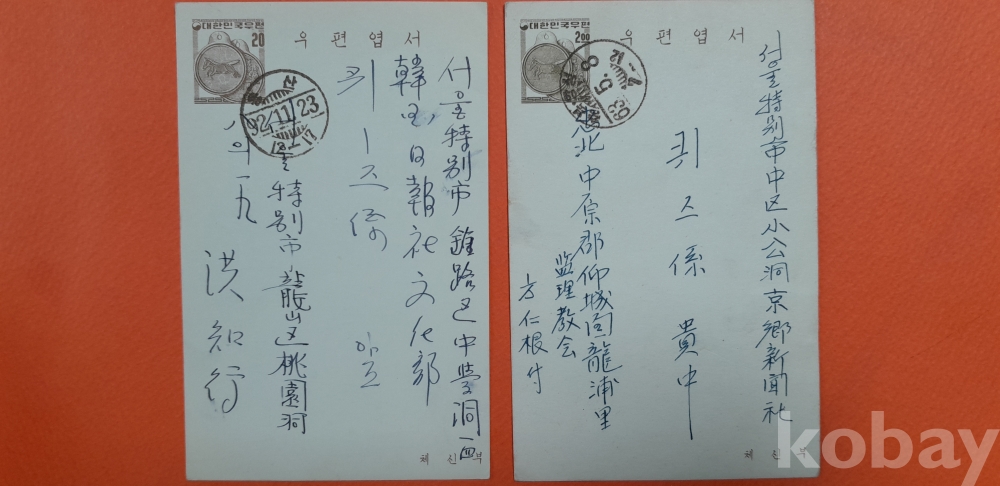 대한민국우편
20
우편엽서
92.11.23
서울特别市 鍾路区 中学洞
韓国日報社 文化部
퀴즈係
서울特别市 龍山区 桃園洞
八의一九
洪知行
체신부
대한민국우편
2.00
우편엽서
서울特别市 中区 小公洞 京郷新聞社
퀴즈係 貴中
忠北 中原郡 仰城面 龍浦里
监理教会
方仁根 付
체신부
kobay